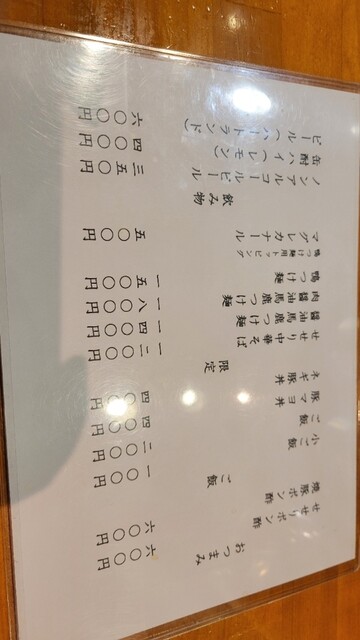 おつまみ
せせりポン酢 六〇〇円
焼豚ポン酢 六〇〇円
ご飯
小ご飯 一〇〇円
ご飯 二〇〇円
豚マヨ丼 四〇〇円
ネギ豚丼 四〇〇円
限定
せせり中華そば 一二〇〇円
醤油馬鹿つけ麺 一四〇〇円
肉醤油馬鹿つけ麺 一八〇〇円
鴨つけ麺 一五〇〇円
鴨つけ麺用トッピング
マグレカナール 五〇〇円
飲み物
ノンアルコールビール 三五〇円
缶酎ハイ（レモン） 四〇〇円
ビール（ハートランド） 六〇〇円